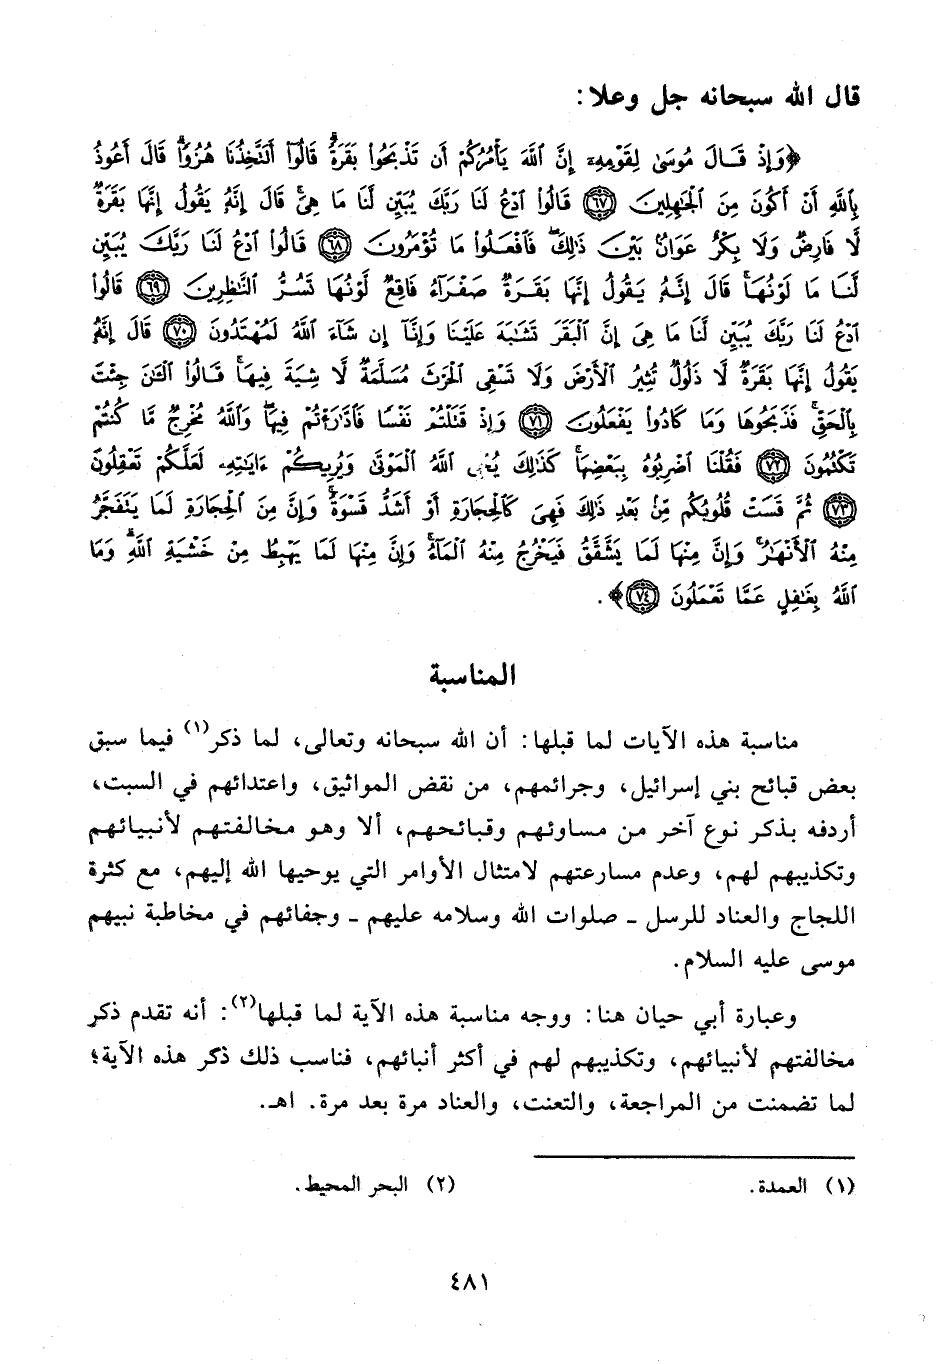 قال الله سبحانه جل وعلا:
﴿وَإِذْ قَـالَ مُوسَىٰ لِقَوْمِهِۦٓ إِنَّ ٱللَّهَ يَأْمُرُكُمْ أَن تَذْبَحُوا۟ بَقَرَةً ۖ قَالُوٓا۟ أَتَتَّخِذُنَا هُزُوًا ۖ قَالَ أَعُوذُ
بِٱللَّهِ أَنْ أَكُونَ مِنَ ٱلْجَٰهِلِينَ ﴿٦٧﴾ قَالُوا۟ ٱدْعُ لَنَا رَبَّكَ يُبَيِّن لَّنَا مَا هِىَ ۚ قَالَ إِنَّهُۥ يَقُولُ إِنَّهَا بَقَرَةٌ
لَّا فَارِضٌ وَلَا بِكْرٌ عَوَانٌۢ بَيْنَ ذَٰلِكَ ۖ فَٱفْعَلُوا۟ مَا تُؤْمَرُونَ ﴿٦٨﴾ قَالُوا۟ ٱدْعُ لَنَا رَبَّكَ يُبَيِّن
لَّنَا مَا لَوْنُهَا ۚ قَالَ إِنَّهُۥ يَقُولُ إِنَّهَا بَقَرَةٌ صَفْرَآءُ فَاقِعٌ لَّوْنُهَا تَسُرُّ ٱلنَّٰظِرِينَ ﴿٦٩﴾ قَالُوا۟
ٱدْعُ لَنَا رَبَّكَ يُبَيِّن لَّنَا مَا هِىَ إِنَّ ٱلْبَقَرَ تَشَٰبَهَ عَلَيْنَا وَإِنَّآ إِن شَآءَ ٱللَّهُ لَمُهْتَدُونَ ﴿٧٠﴾ قَالَ إِنَّهُۥ
يَقُولُ إِنَّهَا بَقَرَةٌ لَّا ذَلُولٌ تُثِيرُ ٱلْأَرْضَ وَلَا تَسْقِى ٱلْحَرْثَ مُسَلَّمَةٌ لَّا شِيَةَ فِيهَا ۚ قَـالُوا۟ ٱلْـَٰٔنَ جِئْتَ
بِٱلْحَقِّ ۚ فَذَبَحُوهَا وَمَا كَادُوا۟ يَفْعَلُونَ ﴿٧١﴾ وَإِذْ قَتَلْتُمْ نَفْسًا فَٱدَّٰرَْٰٔتُمْ فِيهَا ۖ وَٱللَّهُ مُخْرِجٌ مَّا كُنتُمْ
تَكْتُمُونَ ﴿٧٢﴾ فَقُلْنَا ٱضْرِبُوهُ بِبَعْضِهَا ۚ كَذَٰلِكَ يُحْىِ ٱللَّهُ ٱلْمَوْتَىٰ وَيُرِيكُمْ ءَايَٰتِهِۦ لَعَلَّكُمْ تَعْقِلُونَ
﴿٧٣﴾ ثُمَّ قَسَتْ قُلُوبُكُم مِّنۢ بَعْدِ ذَٰلِكَ فَهِىَ كَٱلْحِجَارَةِ أَوْ أَشَدُّ قَسْوَةً ۚ وَإِنَّ مِنَ ٱلْحِجَارَةِ لَمَا يَتَفَجَّرُ
مِنْهُ ٱلْأَنْهَٰرُ ۚ وَإِنَّ مِنْهَا لَمَا يَشَّقَّقُ فَيَخْرُجُ مِنْهُ ٱلْمَآءُ ۚ وَإِنَّ مِنْهَا لَمَا يَهْبِطُ مِنْ خَشْيَةِ ٱللَّهِ ۗ وَمَا
ٱللَّهُ بِغَٰفِلٍ عَمَّا تَعْمَلُونَ ﴿٧٤﴾﴾.
المناسبة
مناسبة هذه الآيات لما قبلها: أن الله سبحانه وتعالى، لما ذكر(١) فيما سبق
بعض قبائح بني إسرائيل، وجرائمهم، من نقض المواثيق، واعتدائهم في السبت،
أردفه بذكر نوع آخر من مساوئهم وقبائحهم، ألا وهو مخالفتهم لأنبيائهم
وتكذيبهم لهم، وعدم مسارعتهم لامتثال الأوامر التي يوحيها الله إليهم، مع كثرة
اللجاج والعناد للرسل ـ صلوات الله وسلامه عليهم ـ وجفائهم في مخاطبة نبيهم
موسى عليه السلام.
وعبارة أبي حيان هنا: ووجه مناسبة هذه الآية لما قبلها(٢): أنه تقدم ذكر
مخالفتهم لأنبيائهم، وتكذيبهم لهم في أكثر أنبائهم، فناسب ذلك ذكر هذه الآية؛
لما تضمنت من المراجعة، والتعنت، والعناد مرة بعد مرة. اهـ.
(١) العمدة. (٢) البحر المحيط.
٤٨١